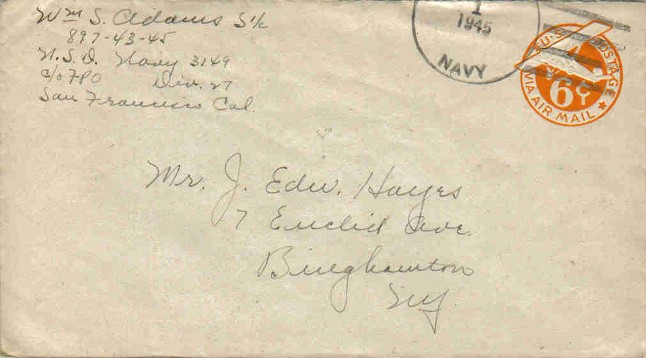 Wm S. Adams S1/c
897-43-45
N.S.D. Navy 3149
c/o FPO Div. 27
San Francisco Cal.
1
1945
NAVY
U.S. POSTAGE
6¢
VIA AIR MAIL
Mr. J. Edw. Hayes
7 Euclid Ave.
Binghamton
NY